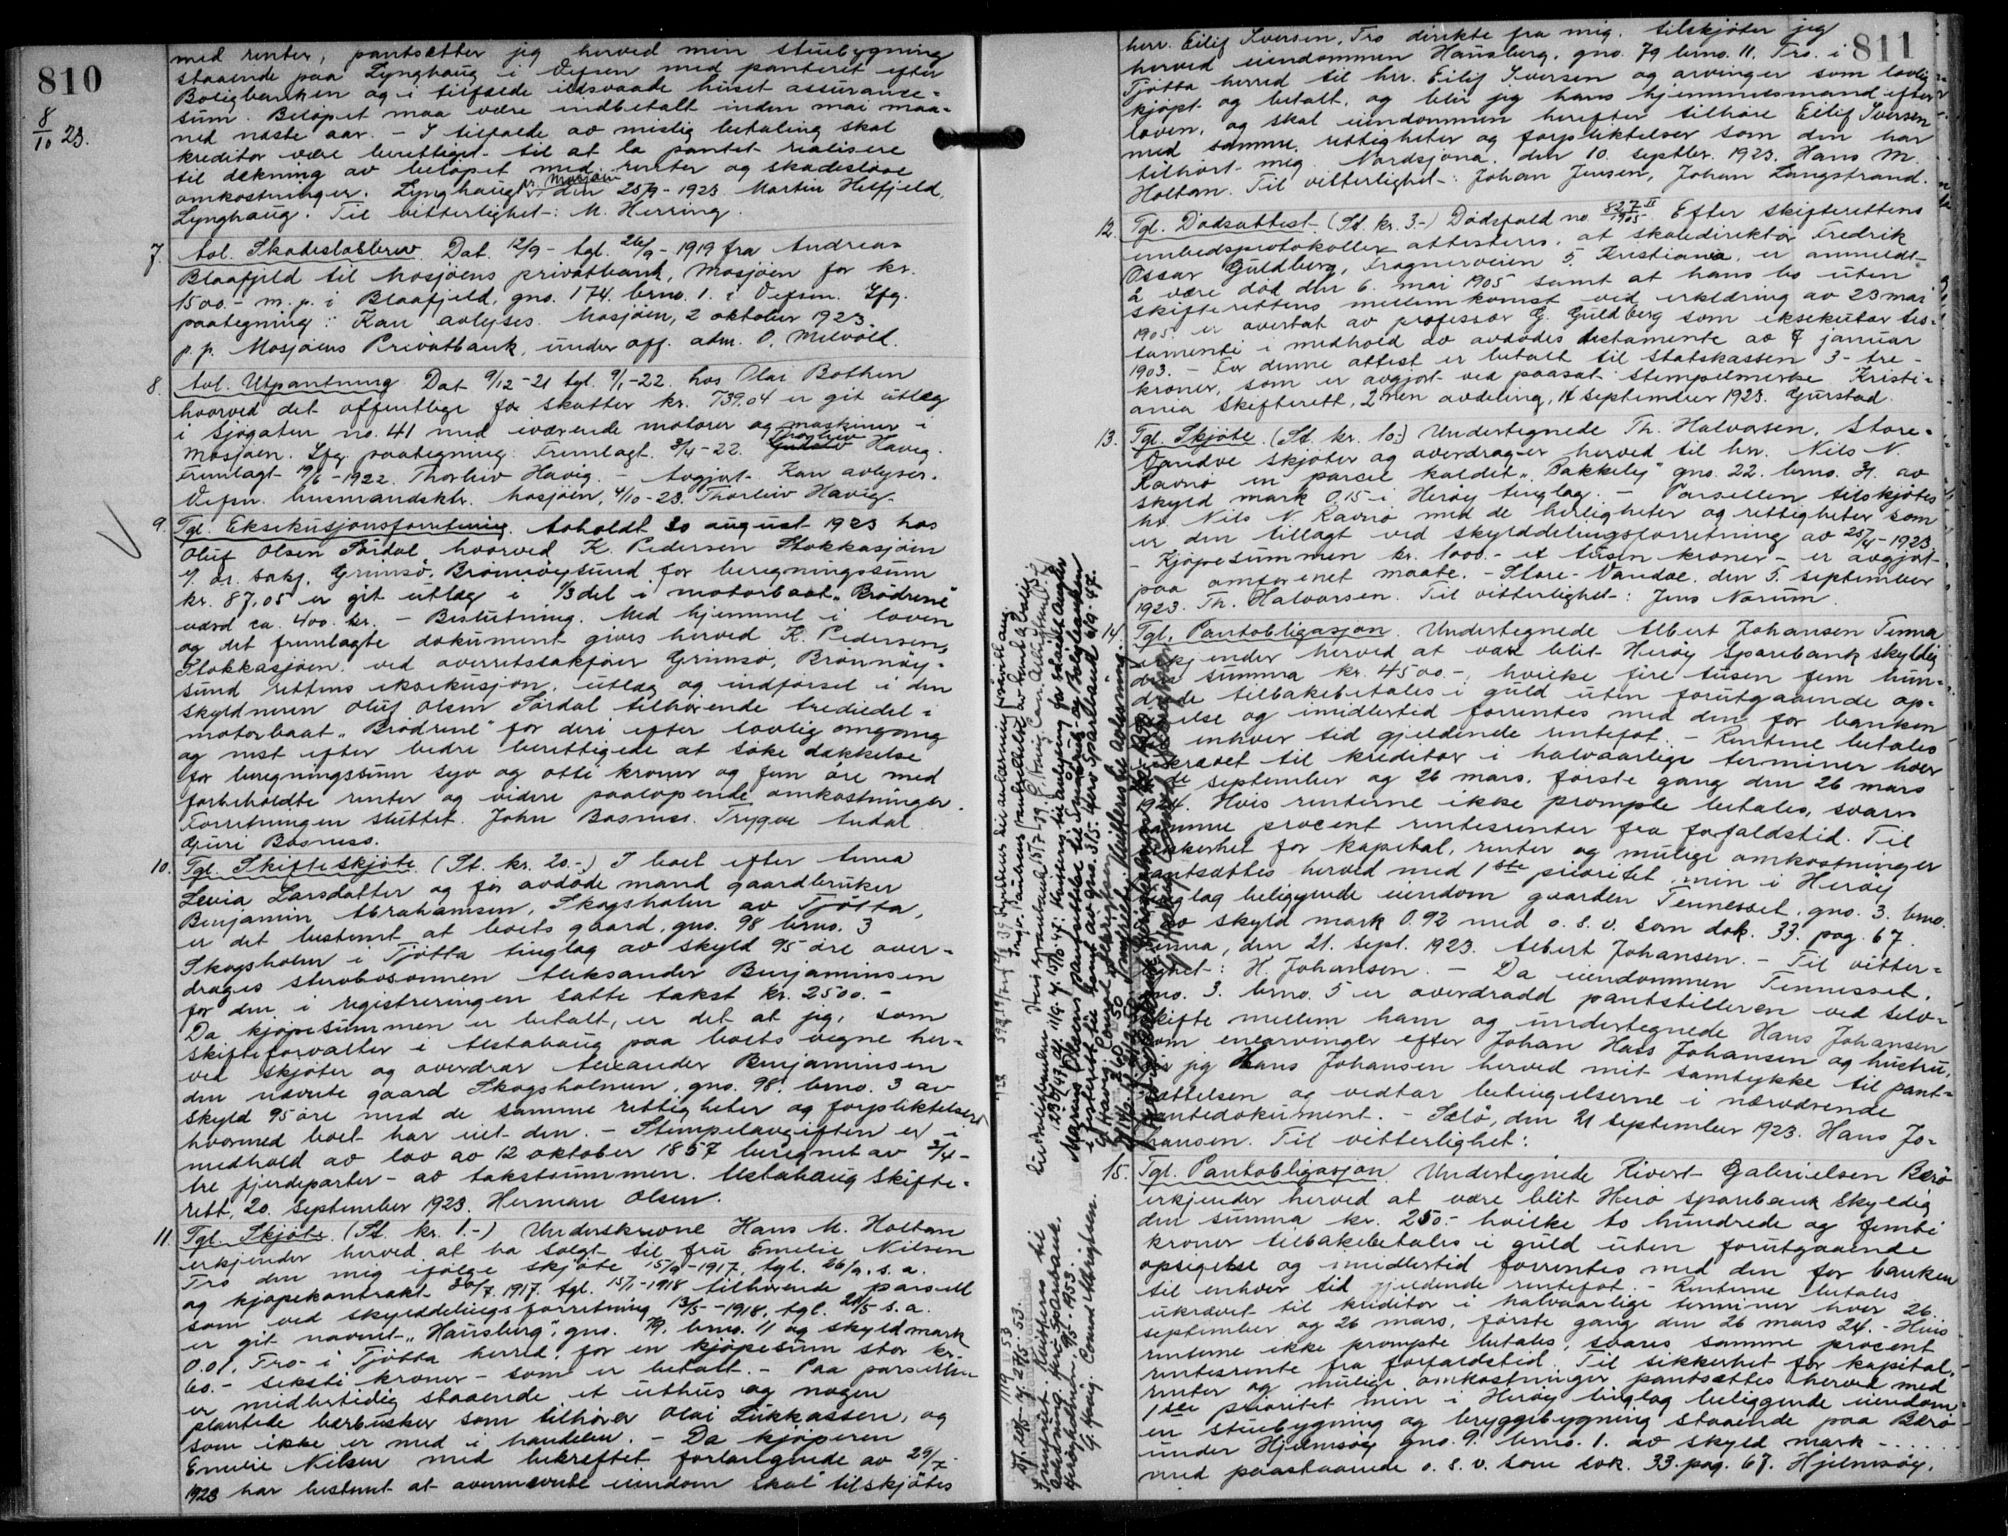 810
8/10 23.
med renter, pantsætter jeg herved min stuebygning
staaende paa Lynghaug i Vefsen med panteret efter
Boligbanken og i tilfælde ildsvaade huset assurance-
sum. Beløpet maa være indbetalt inden mai maa-
ned næste aar. - I tilfælde av mislig betaling skal
kreditor være berettiget til at la pantet realisere
til dekning av beløpet med renter og skadesløse
omkostninger. Lynghaug pr. Mosjøen den 25/9 - 1923 Morten Helfjeld,
Lynghaug. Til vitterlighet: M. Herring.
7. Avl. Skadesløsbrev. Dat. 12/9 - tgl. 26/9 - 1919 fra Andreas
Blaafjeld til Mosjøens privatbank, Mosjøen for kr.
1500.- m. p. i Blaafjeld, gno. 174. brno. 1. i Vefsen. Lfg.
paategning: Kan avlyses. Mosjøen, 2 oktober 1923.
p. p. Mosjøens Privatbank, under off. adm. O. Milvold.
8. Avl. Utpantning. Dat 9/12 - 21 tgl. 9/1 - 22. hos Olai Bothen
hvorved det offentlige for skatter kr. 739.04 er git utlæg
i Sjøgaten no. 41 med iværende motorer og maskiner i
Mosjøen. Lfg. paategning: Fremlagt 3/4 - 22. Thorleiv Havig.
Fremlagt 19/6 - 1922. Thorleiv Havig. Avgjort. Kan avlyses.
Vefsn. lensmandsktr. Mosjøen, 4/10 - 23. Thorleiv Havig.
9. Tgl. Eksekusjonsforretning. Avholdt 30 august 1923 hos
Oluf Olsen Sørdal hvorved K. Pedersen Stokkasjøen
v. or. sakf. Grimsø, Brønnøysund for beregningssum
kr. 87,05 er git utlæg i 1/3 del i motorbaat "Brødrene"
værd ca. 400. kr. - Beslutning. Med hjemmel i loven
og det fremlagte dokument gives herved K. Pedersen,
Stokkasjøen ved overretssakfører Grimsø, Brønnøy-
sund rettens eksekusjon, utlæg og indførsel i den
skyldneren Oluf Olsen Sørdal tilhørende trediedel i
motorbaat "Brødrene" for deri efter lovlig omgang
og næst efter bedre berettigede at søke dækkelse
for beregningssum syv og otti kroner og fem øre med
forbeholdte renter og videre paaløpende omkostninger.
Forretningen sluttet. John Bosness. Trygve Andal.
Guri Bosness.
10. Tgl. Skifteskjøte (St. kr. 20.-) I boet efter Anna
Levia Larsdatter og før avdøde mand gaardbruker
Benjamin Abrahamsen, Skogsholm av Tjøtta,
er det bestemt at boets gaard, gno. 98 brno. 3
Skogsholm i Tjøtta tinglag av skyld 95 øre over-
drages stervbosønnen Aleksander Benjaminsen
for den i registreringen satte takst kr. 2500.-
Da kjøpesummen er betalt, er det at jeg, som
skifteforvalter i Alstahaug paa boets vegne her-
ved skjøter og overdrar Alexander Benjaminsen
den nævnte gaard Skogsholmen, gno. 98. brno. 3 av
skyld 95 øre med de samme rettigheter og forpliktelser
hvormed boet har eiet den. - Stempelavgiften er i
medhold av lov av 12 oktober 1857 beregnet av 3/4 -
tre fjerdeparter - av takstsummen. Alstahaug skifte-
rett, 20. september 1923. Herman Olsen.
11. Tgl. Skjøte. (St. kr. 1.-) Underskrevne Hans M. Holtan
erkjender herved at ha solgt til fru Emelie Nilsen
Tro den mig ifølge skjøte 15/9 - 1917, tgl. 26/9. s. a.
og kjøpekontrakt 20/7. 1917. tgl. 15/1 - 1918 tilhørende parsell
som ved skylddelingsforretning 13/5 - 1918, tgl. 28/5 s. a.
er git navnet "Hausberg", gno. 79. brno. 11 og skyldmark
0.01. Tro i Tjøtta herred, for en kjøpesum stor kr.
60.- seksti kroner - som er betalt. - Paa parsellen
er midlertidig staaende et uthus og nogen
plantede bærbusker som tilhører Olai Lukkassen, og
som ikke er med i handelen. - Da kjøperen
Emelie Nilsen med bekreftet forlangende av 29/7
1923 har bestemt at avennævnte eiendom skal tilskjøtes
811
herr. Eilif Iversen, Tro direkte fra mig, tilskjøter jeg
herved eiendommen Hausberg, gno. 79 brno. 11. Tro. i
Tjøtta herred til hr. Eilif Iversen og arvinger som lovlig
kjøpt og betalt, og blir jeg hans hjemmelsmand efter
loven, og skal eiendommen herefter tilhøre Eilif Iversen
med samme rettigheter og forpliktelser som den har
tilhørt mig. Nordsjona, den 10. septbr. 1923. Hans M.
Holtan. Til vitterlighet: Johan Jensen, Johan Langstrand.
12. Tgl. Dødsattest (St. kr. 3.-) Dødsfald no. 827 II/1905. Efter skifterettens
embedsprotokoller attesteres, at skoledirektør Fredrik
Oscar Guldberg, Frognerveien 5, Kristiania, er anmeldt
å være død den 6. mai 1905 samt at hans bo uten
skifterettens mellemkomst ved erklæring av 23 mai
1905 er overtat av professor G. Guldberg som eksekutor tes-
tamenti i medhold av avdødes testamente av 7 januar
1903. - For denne attest er betalt til statskassen 3 - tre -
kroner, som er avgjort ved paasat stempelmerke. Kristi-
ania Skifterett, 2nen avdeling, 14 september 1923. Gurstad.
13. Tgl. Skjøte. (St. kr. 10.-) Undertegnede Th. Halvorsen, Store-
Vandve skjøter og overdrager herved til hr. Nils N.
Ravnø en parcel kaldet "Bakkelej" gno. 22. brno. 31. av
skyld mark 0.15 i Herøy tinglag. - Parsellen tilskjøtes
hr. Nils N. Ravnø med de herligheter og rettigheter som
er den tillagt ved skylddelingsforretning av 25/4 - 1923.
- Kjøpesummen kr. 1000.- et tusen kroner - er avgjort
paa omforenet maate. - Store-Vandve, den 5. september
1923. Th. Halvorsen. Til vitterlighet: Jens Norum.
14. Tgl. Pantobligasjon. Undertegnede Albert Johansen Tenna
erkjender herved at være blit Herøy Sparebank skyldig
den summa kr. 4500.-, hvilke fire tusen fem hun-
drede tilbakebetales i guld uten forutgaaende op-
sigelse og imidlertid forrentes med den for banken
til enhver tid gjældende rentefot. - Renterne betales
ukrævet til kreditor i halvaarlige terminer hver
26de september og 26 mars, første gang den 26 mars
1924. Hvis renterne ikke prompte betales, svares
samme procent rentesrenter fra forfaldstid. Til
sikkerhet for kapital, renter og mulige omkostninger
pantsættes herved med 1ste prioritet min i Herøy
tinglag beliggende eiendom gaarden Tennesset, gno. 3. brno.
5 av skyld mark 0.92 med o. s. v. som dok. 33. pag. 67.
Tenna, den 21. Sept. 1923. Albert Johansen. - Til vitter-
lighet: H. Johansen. - Da eiendommen Tennesset,
gno. 3. brno. 5 er overdradd pantstilleren ved selv-
skifte mellem ham og undertegnede Hans Johansen
som enearvinger efter Johan Hass Johansen og hustru,
gir jeg Hans Johansen herved mit samtykke til pant-
sættelsen og vedtar betingelserne i nærværende
pantedokument. - Sælø, den 21 september 1923. Hans Jo-
hansen. Til vitterlighet:
15. Tgl. Pantobligasjon. Undertegnede Rivert Gabrielsen Berø
erkjender herved at være blit Herø Sparebank skyldig
den summa kr. 250.- hvilke to hundrede og femti
kroner tilbakebetales i guld uten forutgaaende
opsigelse og imidlertid forrentes med den for banken
til enhver tid gjeldende rentefot. - Renterne betales
ukrævet til kreditor i halvaarlige terminer hver 26.
september og 26 mars, første gang den 26 mars 24. - Hvis
renterne ikke prompte betales, svares samme procent
rentesrente fra forfaldstid. Til sikkerhet for kapital,
renter og mulige omkostninger pantsættes herved med
1ste prioritet min i Herøy tinglag beliggende eiendom
en stuebygning og bryggebygning staaende paa Berø
under Hjelmsøy gno. 9. brno. 1. av skyld mark - . . . . .
med paastaaende o. s. v. som dok. 33. pag. 67. Hjelmsøy,
Innført. Kvitteres til
G. Havig. Conrad Mariussen.